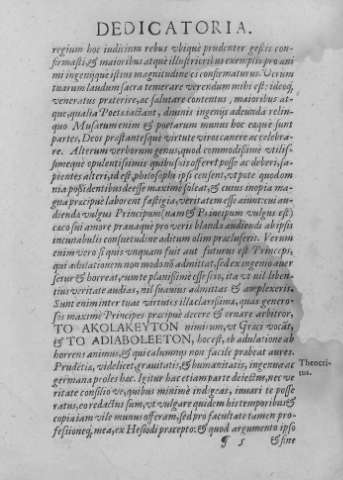 DEDICATORIA.
regium hoc iudicium rebus vbiq́ue prudenter gestis con-
firmasti, & maioribus atque illustrioribus exemplis pro ani
mi ingeniique istius magnitudine es confirmaturus. Verum
tuarum laudum sacra temerare verendum mihi est: ideoq́,
veneratus præterire, ac salutare contentus, maiora as at-
que, qualia Poetæ iactant, diuinis ingenijs adeunda relin-
quo. Musarum enim & poetarum munus hoc eaque sunt
partes, Deos præstantesque virtute viros canere ac celebra-
re. Alterum verborum genus, quod commodissimè vtilis-
simeque opulentissimis quibusuis offerri posse ac deberi, sa-
pientes alteri, id est, philosophi ipsi censent, vtpote quod om
nia possidentibus deesse maximè soleat, & cuius inopia ma-
gna præcipuè laborent fastigia, veritatem esse aiunt: cui au-
dienda vulgus Principum (nam & Principum vulgus est)
cæco sui amore prauaque pro veris blanda audiendi ab ipsis
incunabulis consuetudine aditum olim præcluserit. Verum
enim vero si quis vnquam fuit aut futurus est Princeps,
qui adulationem non modò nō admittat, sed ex ingenio auer
setur & horreat, eum te planissimè esse scio, ita vt nil liben-
tius veritate audias, nil suauius admittas & amplexeris.
Sunt enim inter tuas virtutes illa clarissima, quas genero-
sos maximè Principes præcipuè decere & ornare arbitror,
TO AKOLAKEYTON nimirum, vt Græci vocāt,
& TO ADIABOLEETON, hoc est, ab adulatione ab
horrens animus, & qui calumnijs non facile præbeat aures.
Prudētia, videlicet, grauitatis, & humanitatis, ingenuæ ac
germana proles hæc. Igitur hac etiam parte deiectus, nec ve
ritate consilioue, quibus minimè indigeas, iuuari te posse
ratus, eo redactus sum, vt vulgare quidem his temporibus &
copia iam vile munus offeram, sed pro facultate tamen pro-
fessioneq́, mea, ex Hesiodi præcepto: & quod argumento ipso
Theocri-
tus.
¶ 5
& sine